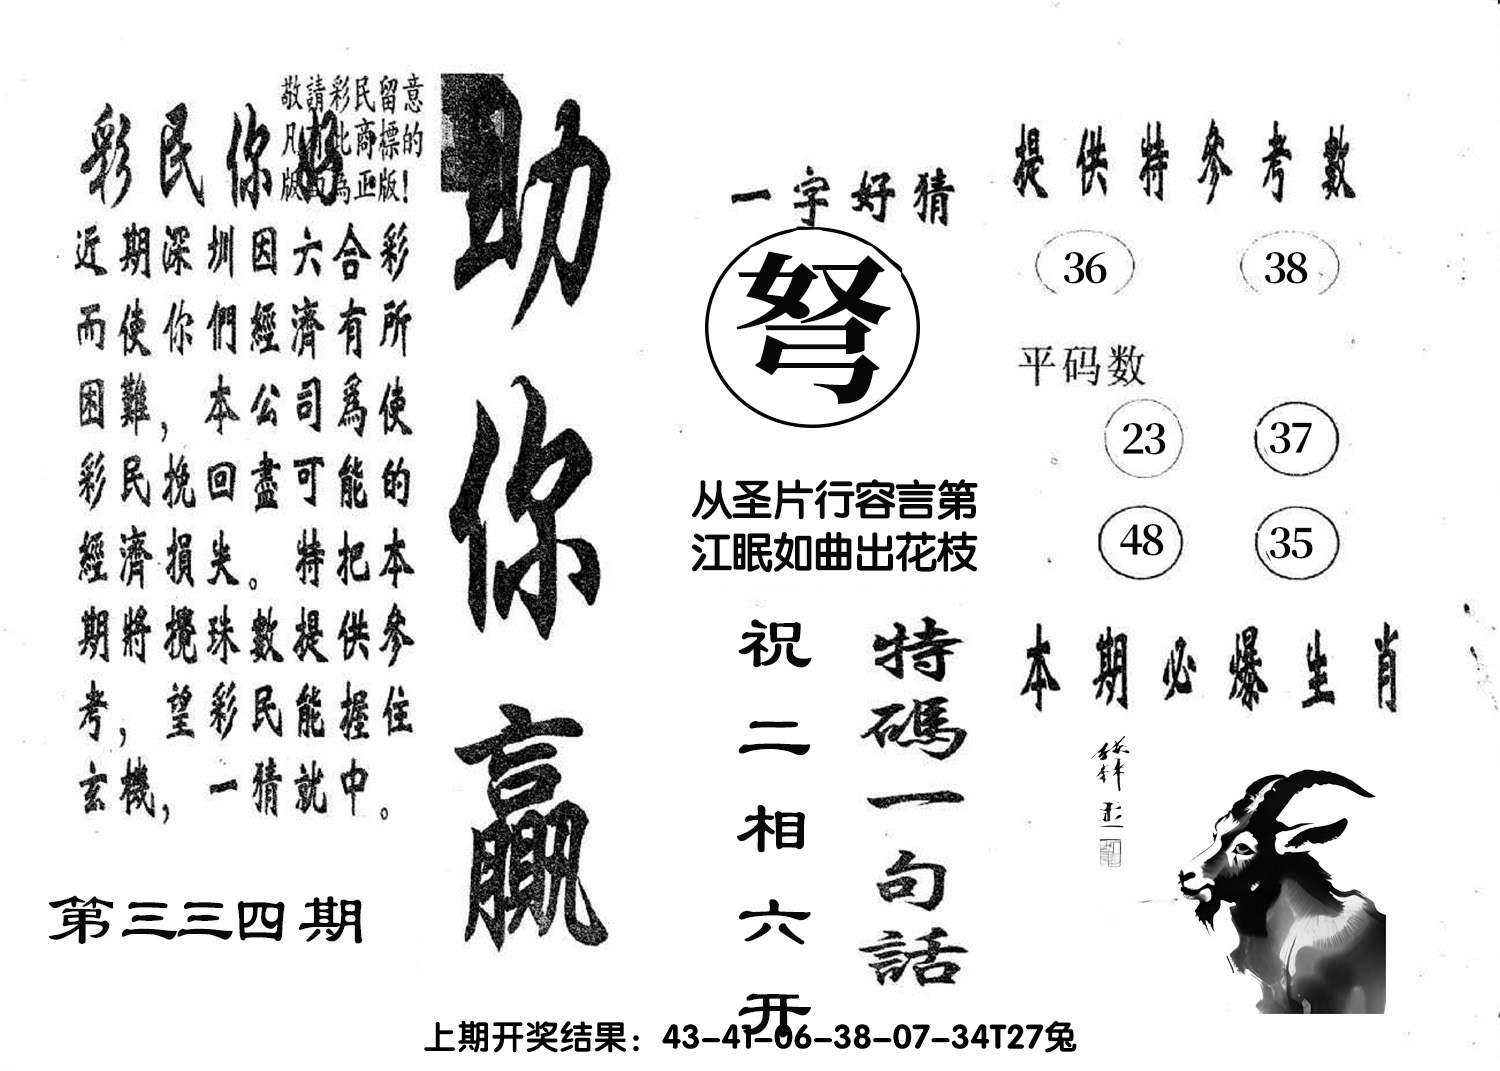 敬請彩民留意
凡有此商標的
版面為正版！
彩民你好
近期深圳因六合彩
而使你們經濟有所
困難，本公司爲使
彩民挽回盡可能的
經濟損失。特把本
期將攪珠數提供參
考，望彩民能握住
玄機，一猜就中。
第三三四期
助你贏
一字好猜
弩
从圣片行容言第
江眠如曲出花枝
特碼一句話
祝二相六开
提供特參考數
36 38
平码数
23 37
48 35
本期必爆生肖
上期开奖结果：43-41-06-38-07-34T27兔